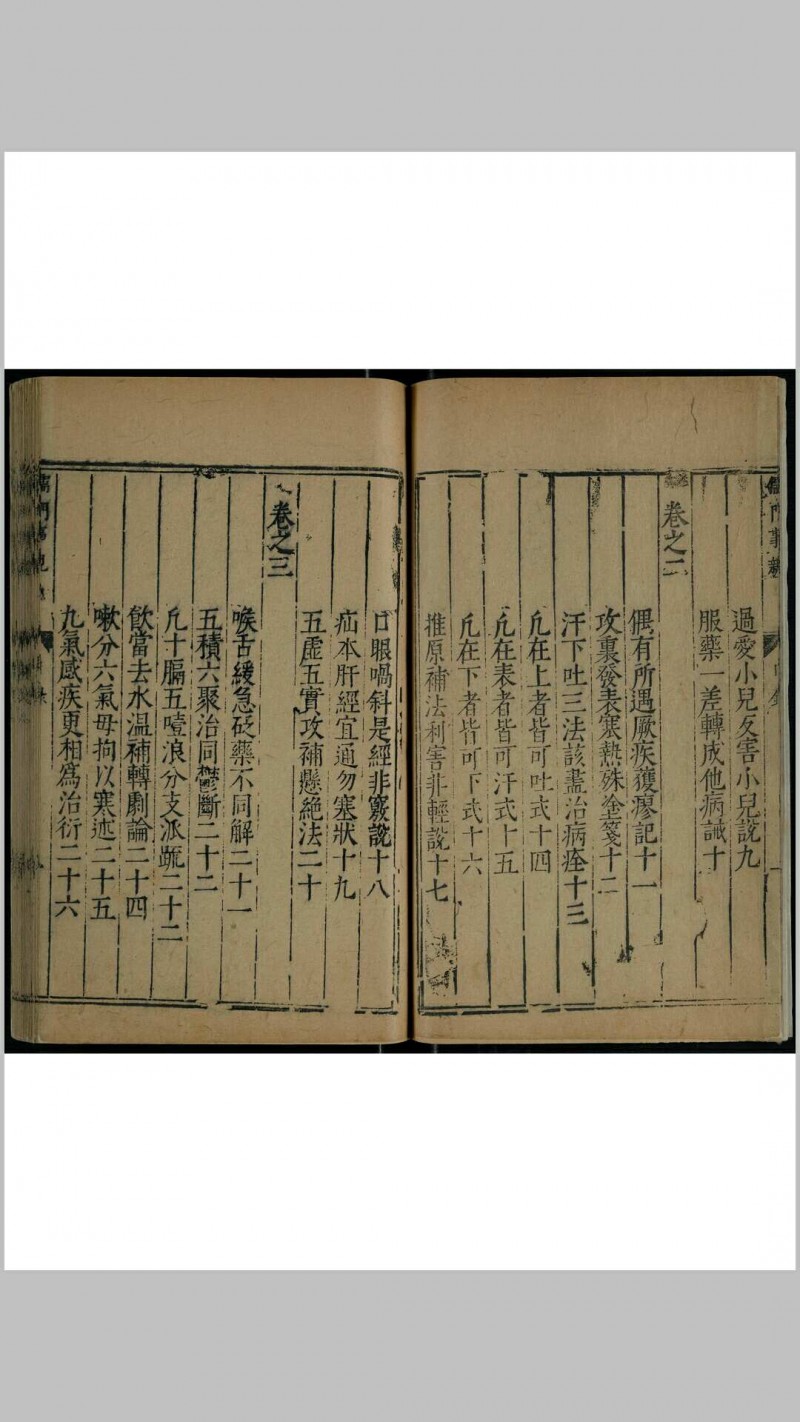 儒門事親
過愛小兒反害小兒說九
服藥一差轉成他病誡十
卷之二
偶有所遇厥疾獲瘳記十一
攻裏發表寒熱殊塗箋十二
汗下吐三法該盡治病詮十三
凢在上者皆可吐式十四
凢在表者皆可汗式十五
凢在下者皆可下式十六
推原補法利害非輕說十七
口眼喎斜是經非竅說十八
疝本肝經宜通勿塞狀十九
五虛五實攻補懸絶法二十
卷之三
喉舌緩急砭藥不同解二十一
五積六聚治同鬱斷二十二
凢十膈五噎浪分支派䟽二十二
飲當去水温補轉劇論二十四
嗽分六氣毋拘以寒述二十五
九氣感疾更相爲治衍二十六